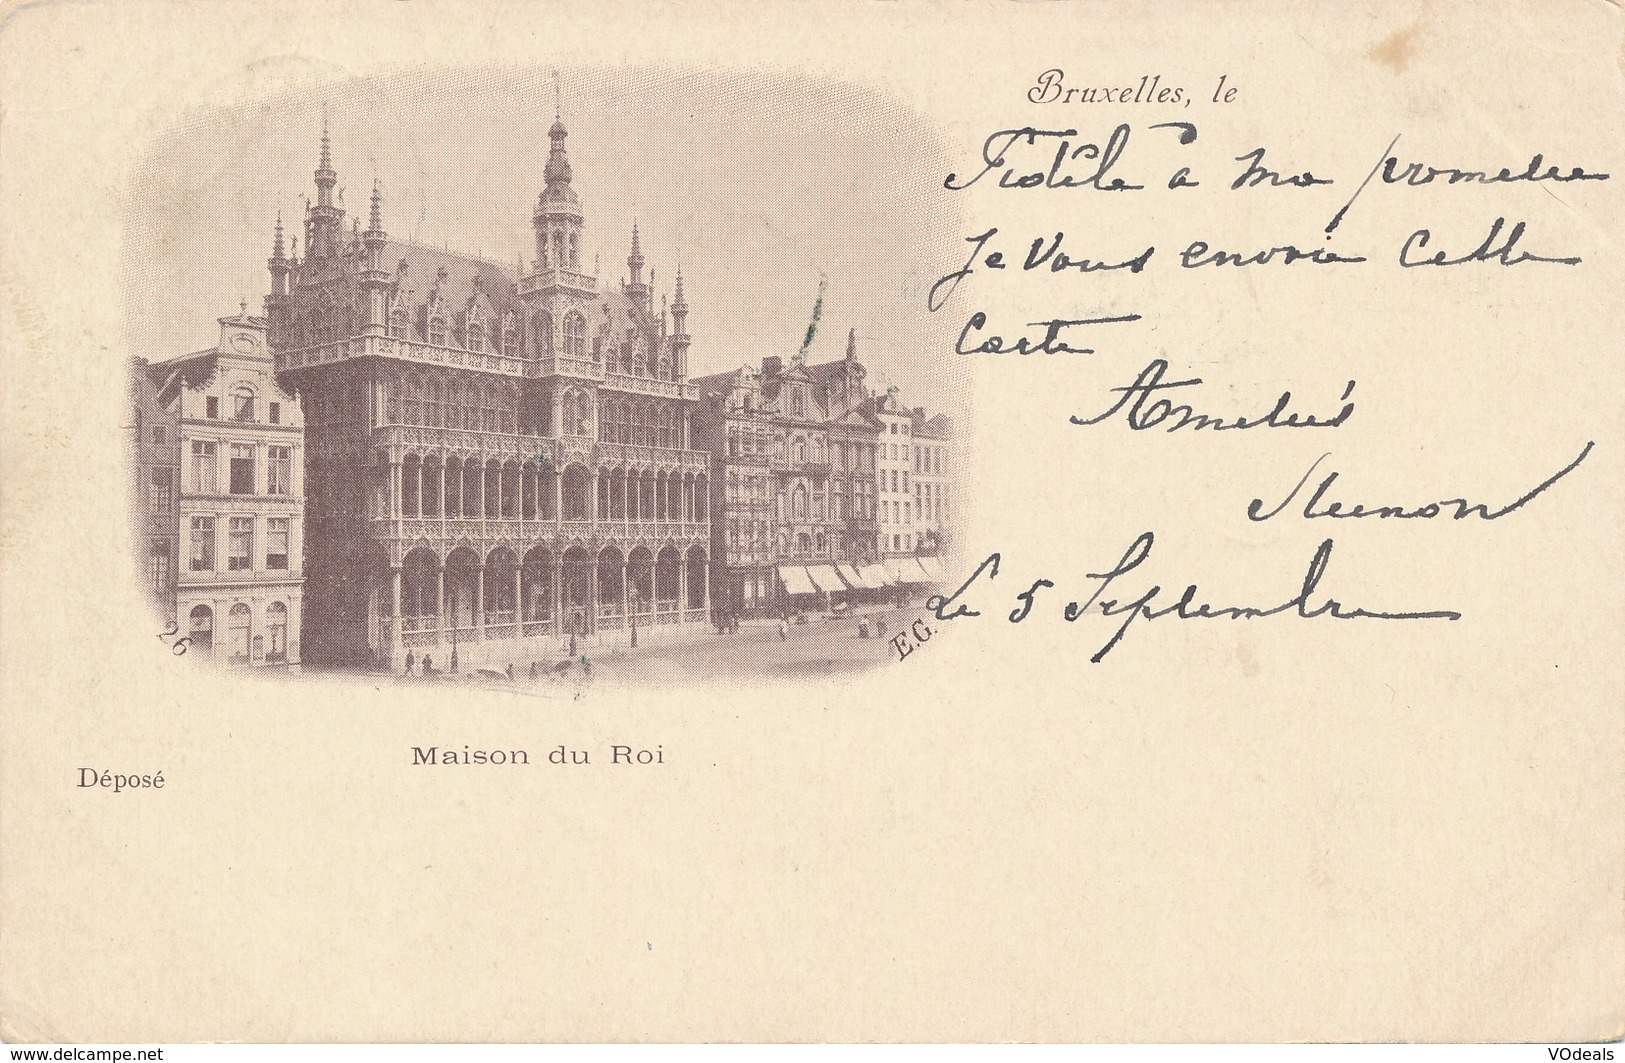 Bruxelles, le
Fidèle à ma promesse
Je vous envoie cette
Carte
Le 5 Septembre
26
E.G.
Maison du Roi
Déposé
delcampe.net
VOdeals